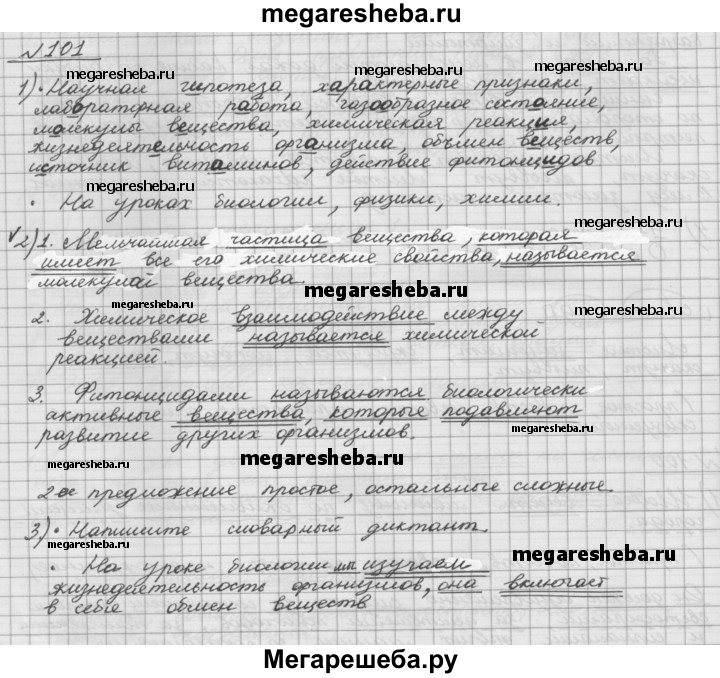 megaresheba.ru
№101
megaresheba.ru
megaresheba.ru
1) • Научная гипотеза, характерные признаки,
лабораторная работа, газообразное состояние,
молекулы вещества, химическая реакция,
жизнедеятельность организма, объмен веществ,
источник витаминов, действие фитонцидов
megaresheba.ru
megaresheba.ru
• На уроках биологии, физики, химии.
2) 1. Мельчайшая частица вещества, которая
имеет все его химические свойства, называется
megaresheba.ru
молекулой вещества.
megaresheba.ru
megaresheba.ru
megaresheba.ru
2. Химическое взаимодействие между
веществами называется химической
реакцией.
megaresheba.ru
megaresheba.ru
3. Фитонцидами называются биологически
активные вещества, которые подавляют
развитие других организмов.
megaresheba.ru
megaresheba.ru
megaresheba.ru
2ое предложение простое, остальные сложные.
3) • Напишите словарный диктант.
megaresheba.ru
megaresheba.ru
megaresheba.ru
• На уроке биологии мы изучаем
жизнедеятельность организмов, она включает
в себе обмен веществ
Мегарешеба.ру